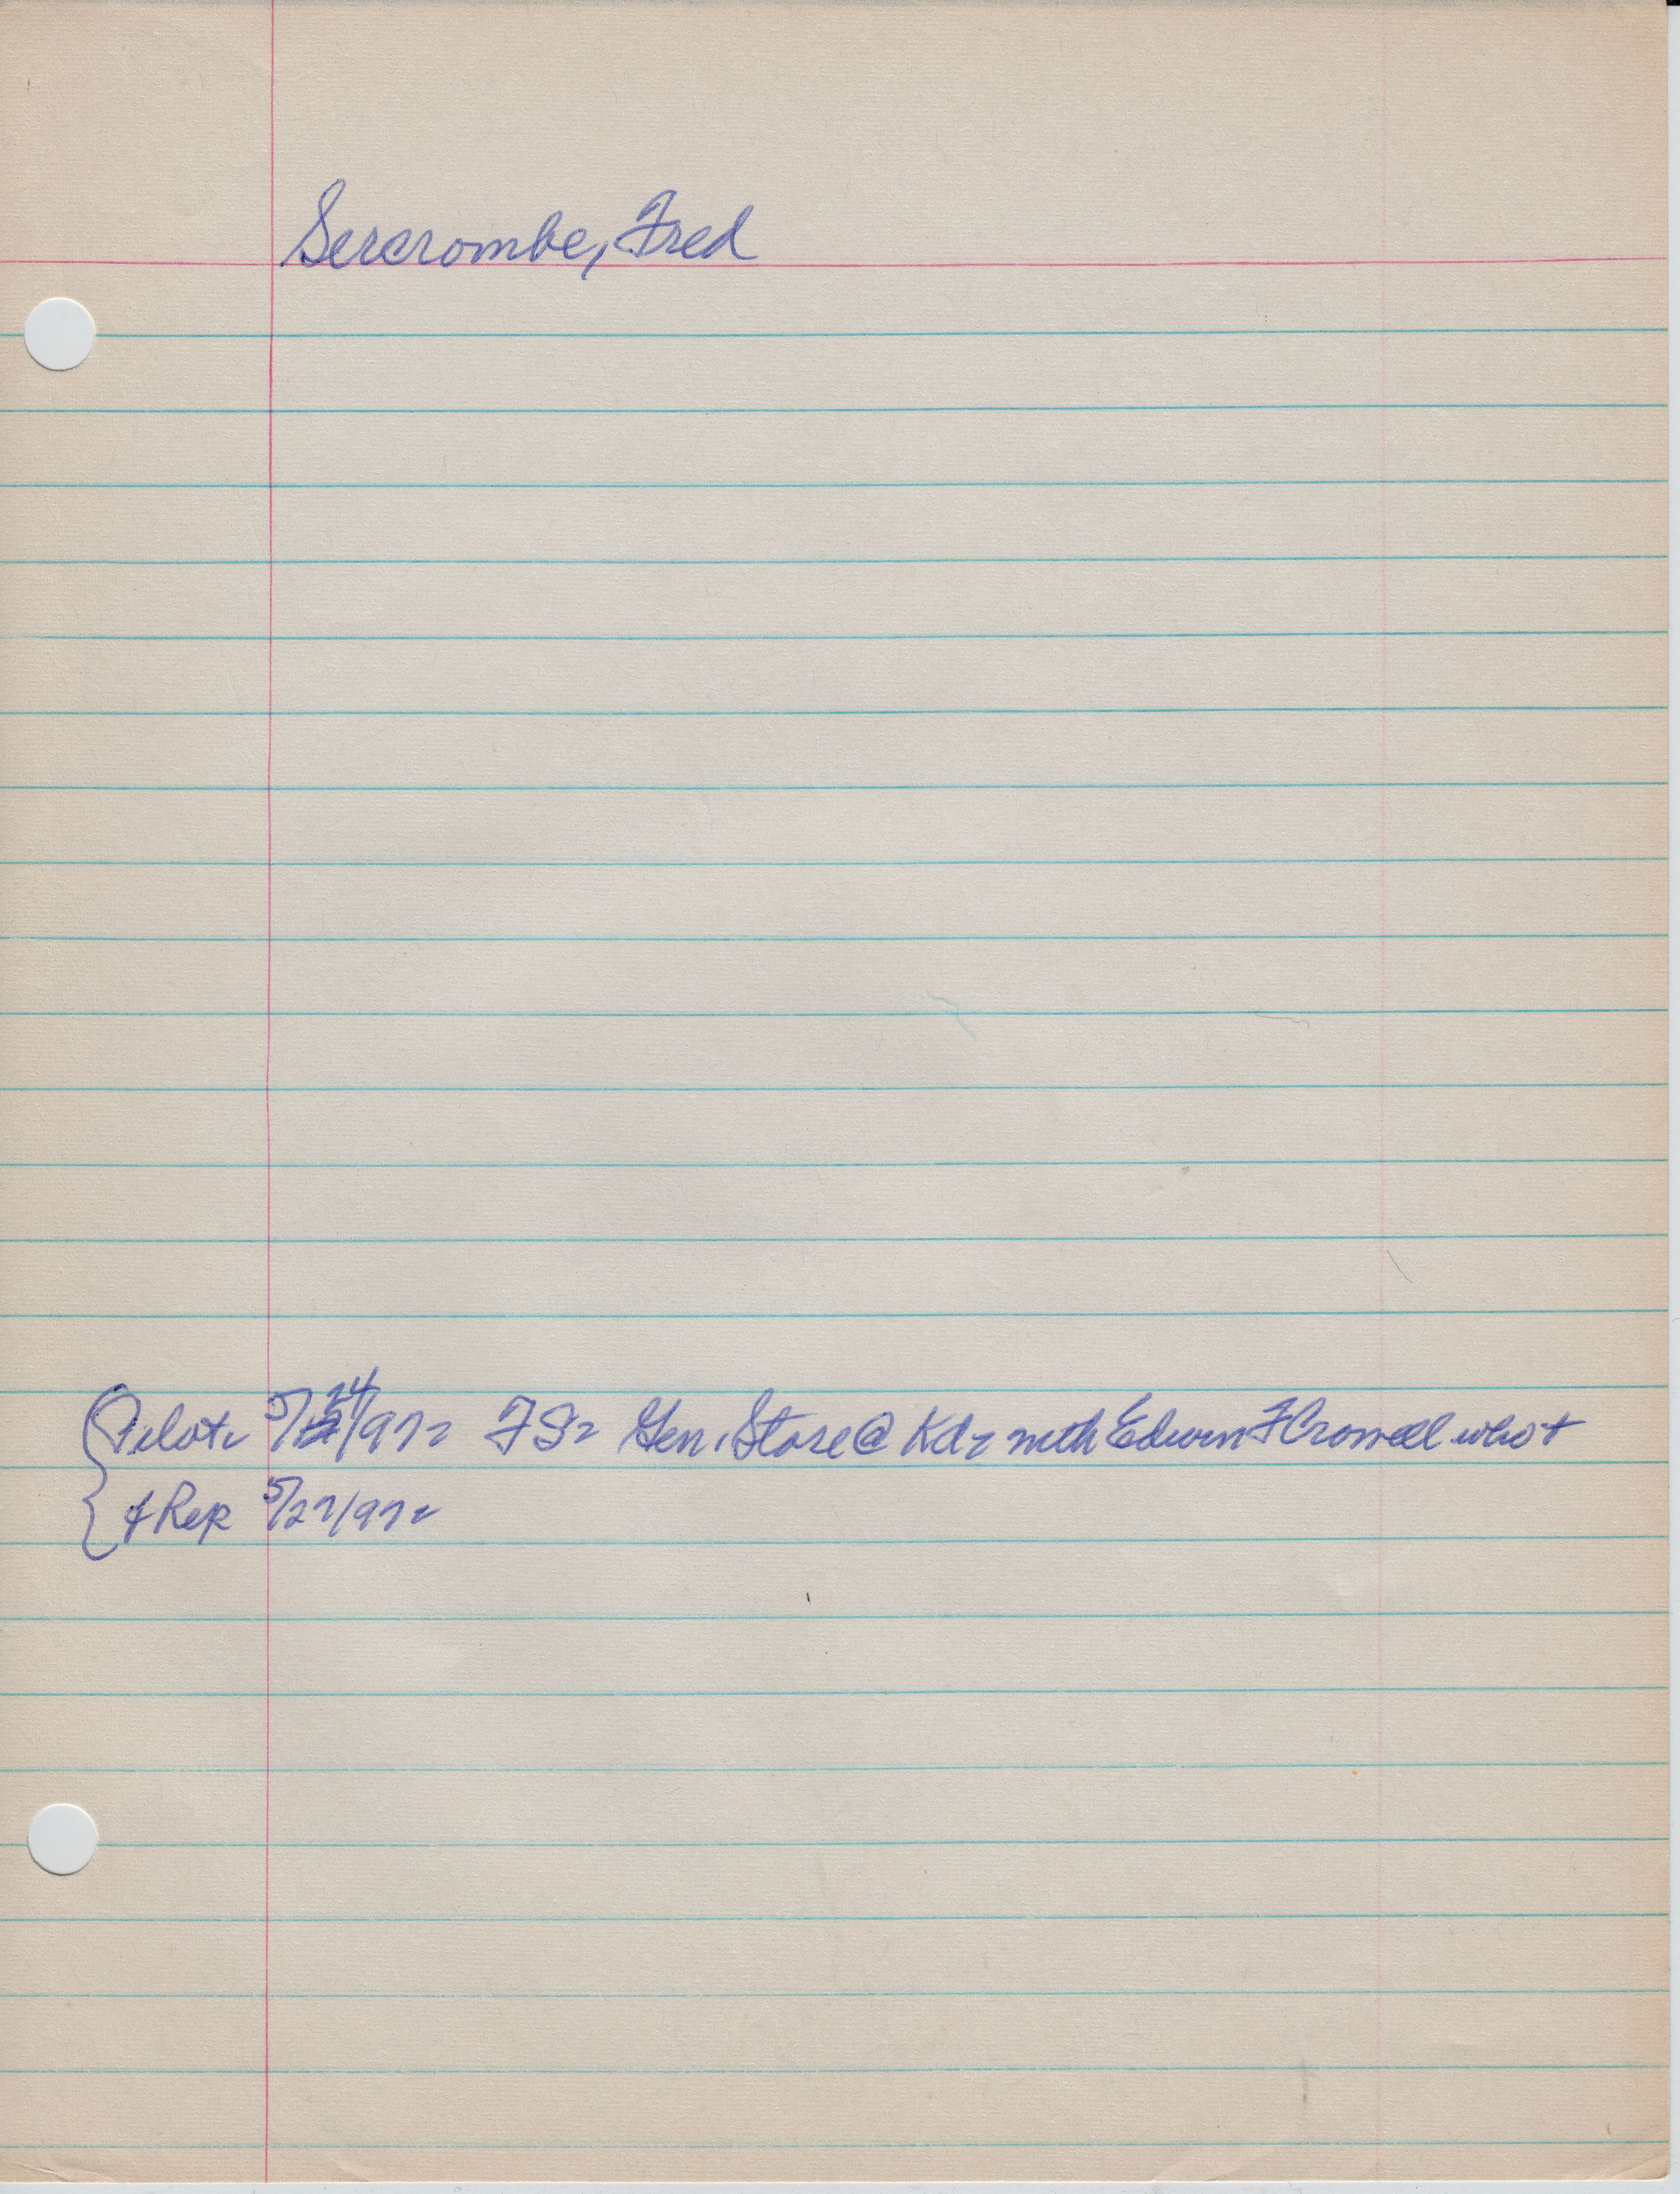 Sercrombe, Fred
Pilot 5/24/97 FS Gen. Store @ Kd with Edwin F Crowell who
& Rep 5/27/97